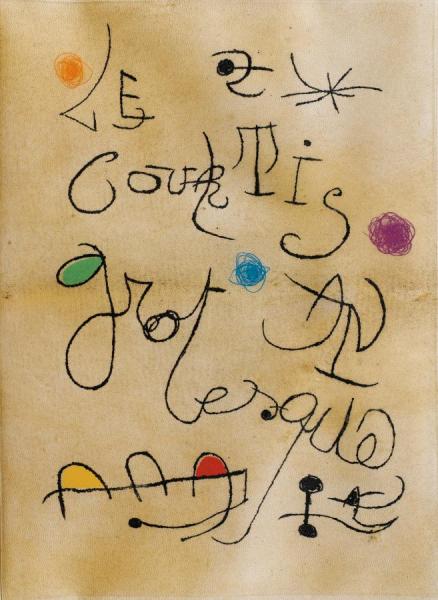 LE
COURTIS
grot AN
esque